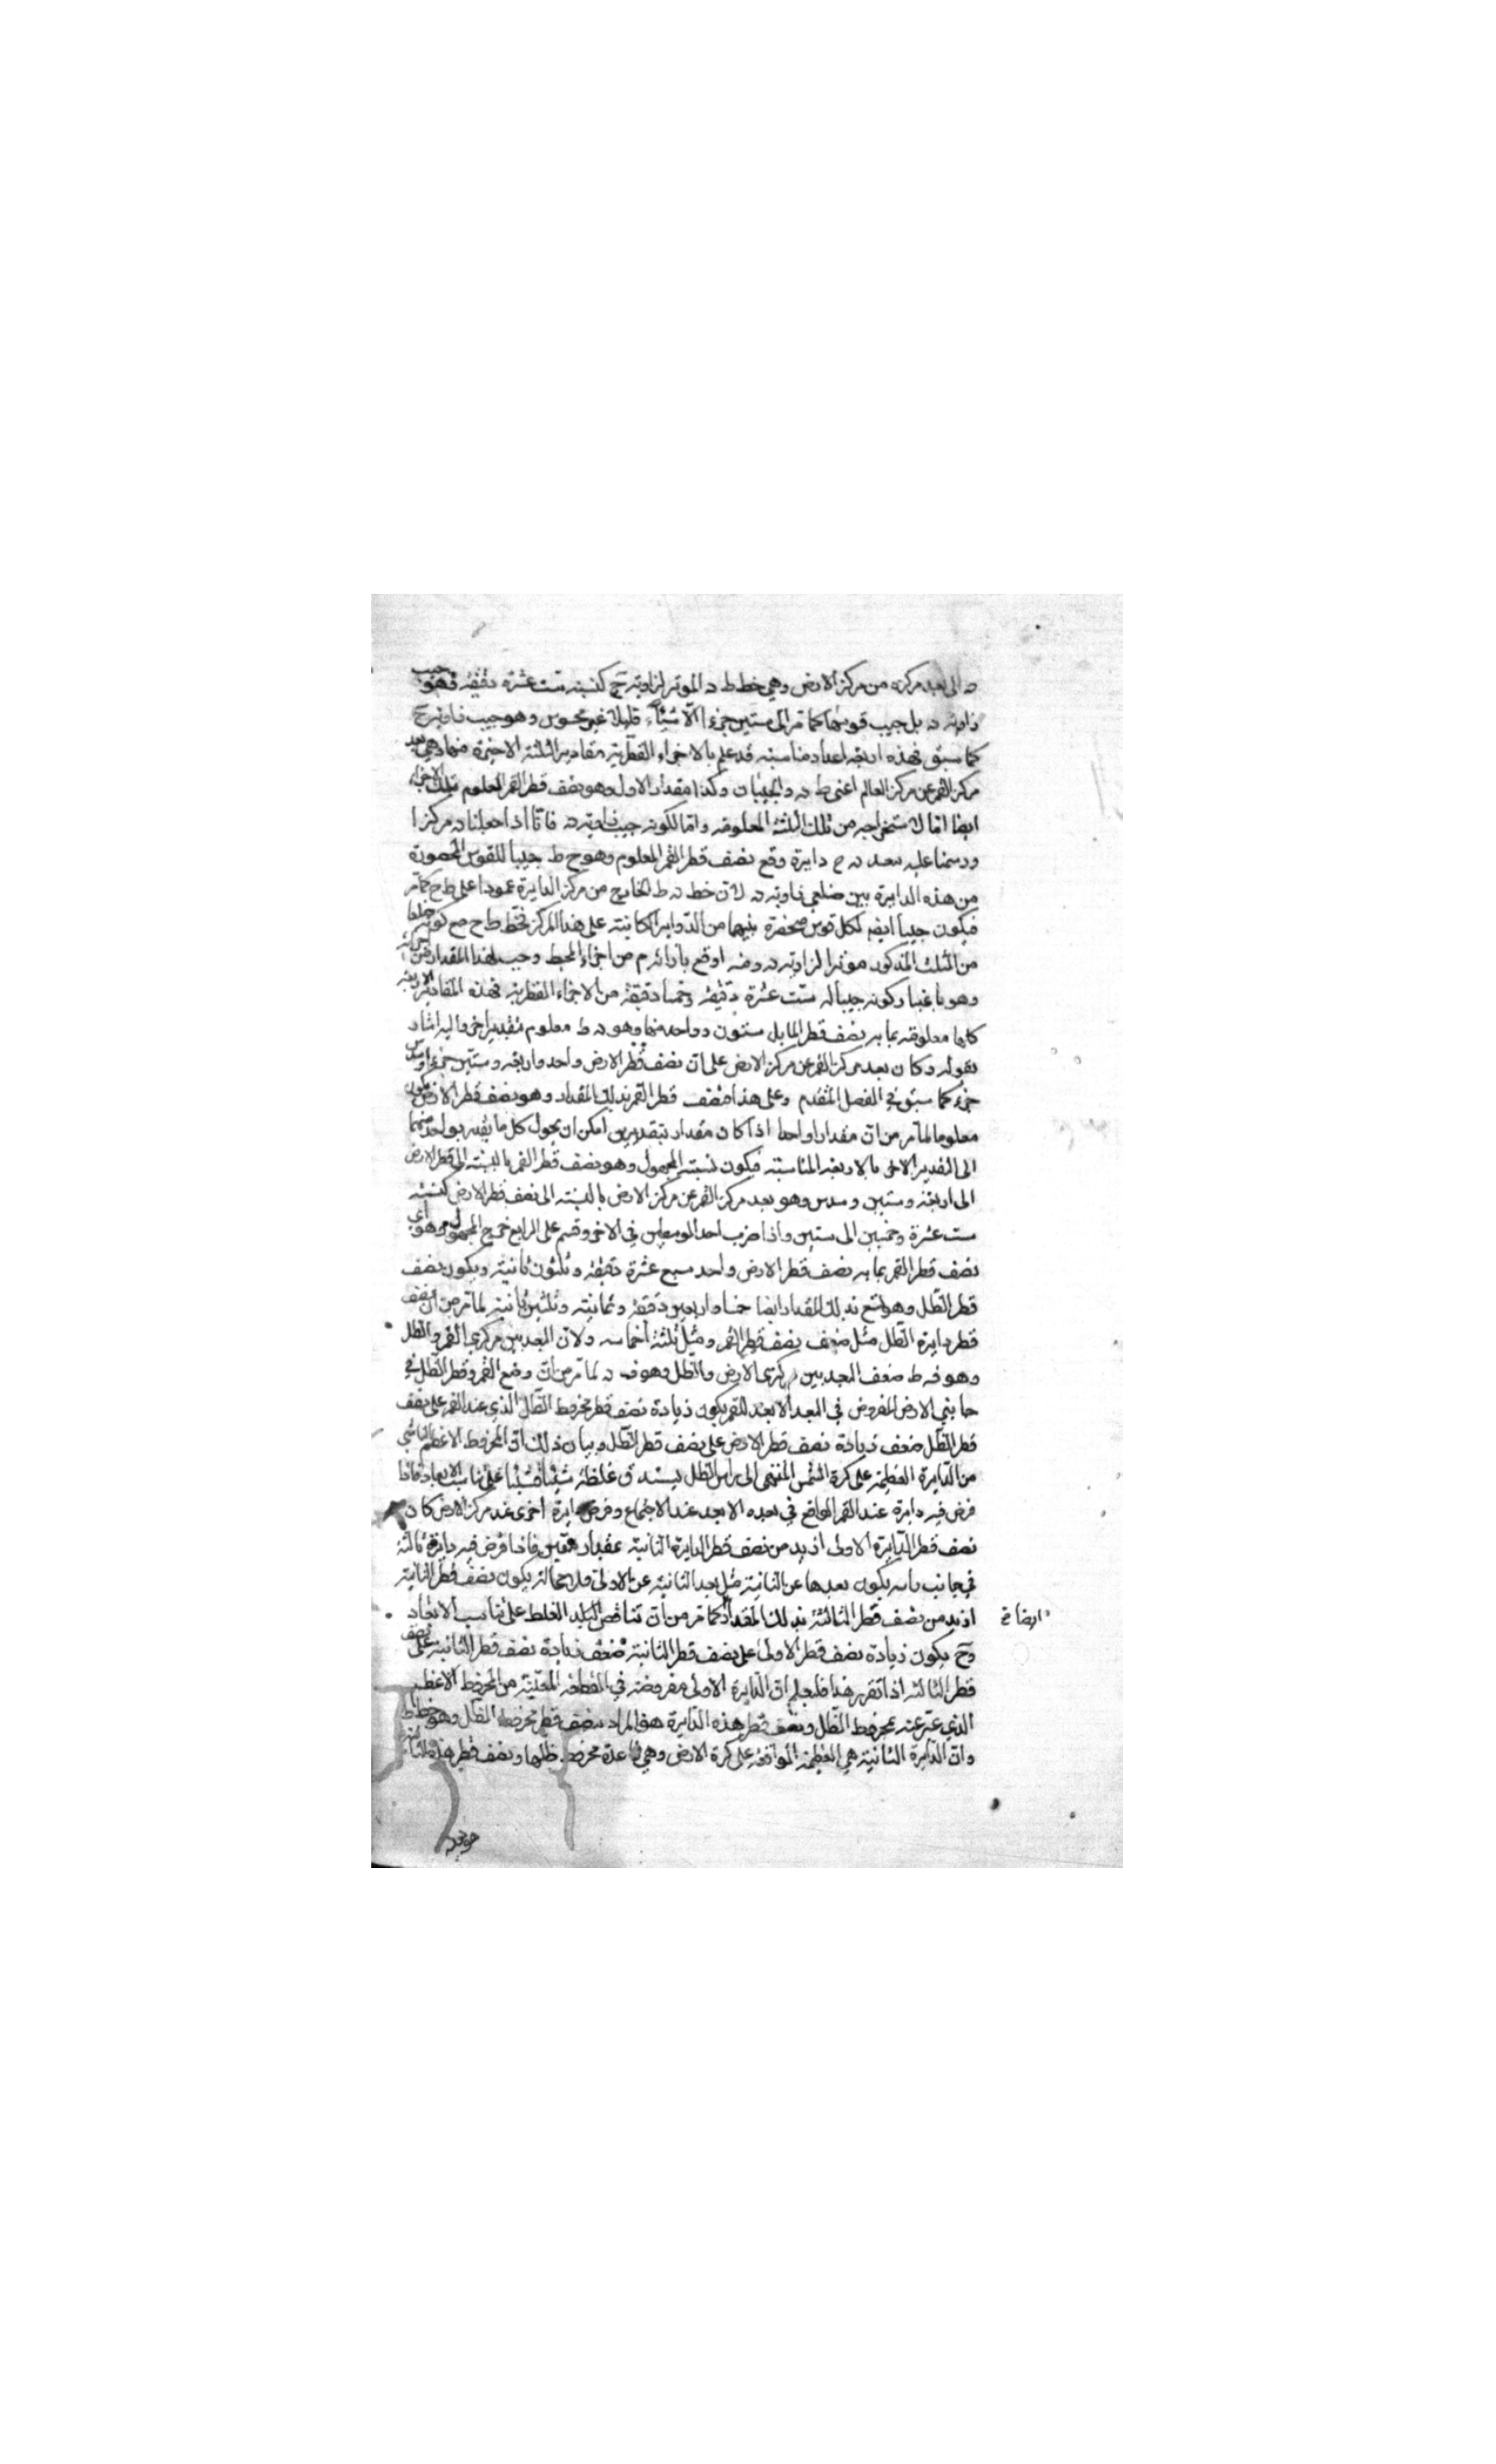 ه الى بعد مركزه من مركز الارض وهي خط ط ه الموتر لزاوية ح كنسبة ست عشرة دقيقة فهو جيب
زاوية ه بل جيب قوسها كما مر الى ستين جزءا الا شيئا قليلا غير محسوس وهو جيب زاوية ح
كما سبق فهذه اربعة اعداد متناسبة قد علم بالاجزاء القطرية مقادير الثلثة الاخيرة منها وهي بعد
مركز القمر عن مركز العالم اعنى ط ه والجيبان وكذا مقدار الاول وهو نصف قطر القمر المعلوم بتلك الاجزاء
ايضا اما لاستخراجه من تلك الثلثة المعلومة واما لكونه جيب زاوية ه فانا اذا جعلنا ه مركزا
ورسمنا عليه ببعد ه ح دايرة وقع نصف قطر القمر المعلوم وهو ح ط جيبا للقوس المحصورة
من هذه الدايرة بين ضلعي زاوية ه لان خط ه ط الخارج من مركز الدايرة عمود على ط ح كما مر
فيكون جيبا ايضا لكل قوس منحصرة بينهما من الدواير الكاينة على هذا المركز فخط ط ح مع كونه ضلعا
من المثلث المذكور موترا لزاوية ه وضه اوقع بازائه م من اجزاء المحيط وجيب لهذا المقدار
وهو باعتبار كونه جيبا له ست عشرة دقيقة وخمسا دقيقة من الاجزاء القطرية فهذه المقادير الاربعة
كلها معلومة بما به نصف قطر المايل ستون وواحد منها وهو ه ط معلوم بتقدير اخر واليه اشار
بقوله وكان بعد مركز القمر عن مركز الارض على ان نصف قطر الارض واحد واربعة وستين جزءا وسدس
جزء كما سبق في الفصل المتقدم وعلى هذا فنصف قطر القمر بذلك المقدار وهو نصف قطر الارض يكون
معلوما لما مر من ان مقدارا واحدا اذا كان مقدار بتقديرين امكن ان يحول كل ما يقدر بواحد منهما
الى التقدير الاخر بالاربعة المتناسبة فيكون نسبة المجهول وهو نصف قطر القمر بالنسبة الى قطر الارض
الى اربعة وستين وسدس وهو بعد مركز القمر عن مركز الارض بالنسبة الى نصف قطر الارض كنسبة
ست عشرة وخمسين الى ستين واذا ضرب احد الوسطين في الاخر وقسم على الرابع خرج المجهول وهو اي
نصف قطر القمر بما به نصف قطر الارض واحد سبع عشرة دقيقة وثلثون ثانية ويكون نصف
قطر الظل وهو بذلك المقدار ايضا خمسا واربعين دقيقة وثمانية وثلثين ثانية لما مر من ان نصف
قطر دايرة الظل مثل ضعف نصف قطر القمر ومثل ثلثة اخماسه ولان البعد بين مركزي القمر والظل
وهو ف ط ضعف البعد بين مركزى الارض والظل وهو ف ه لما مر من ان وضع القمر وقطر الظل في
جانبي الارض المفروض في البعد الابعد للقمر يكون زيادة نصف قطر مخروط الظل الذي عند القمر على نصف
قطر الظل ضعف زيادة نصف قطر الارض على نصف قطر الظل وبيان ذلك ان المخروط الاعظم الناشي
من الدايرة العظيمة على كرة الشمس المنتهي الى راس الظل يستدق غلظه شيئا فشيئا على تناسب الابعاد فاذا
فرض فيه دايرة عند القمر الواقع في بعده الابعد عند الاجتماع وفرض دايرة اخرى عند مركز الارض كان
نصف قطر الدايرة الاولى ازيد من نصف قطر الدايرة الثانية بمقدار معين فاذا فرض فيه دايرة ثالثة
في جانب راسه يكون بعدها عن الثانية مثل بعد الثانية عن الاولى فلا محالة يكون نصف قطر الثانية
ايضا
ازيد من نصف قطر الثالثة بذلك المقدار كما مر من ان تناقص الغلط على تناسب الابعاد
وح يكون زيادة نصف قطر الاولى على نصف قطر الثانية ضعف زيادة نصف قطر الثانية على نصف
قطر الثالثة اذا تقرر هذا فليعلم ان الدايرة الاولى مفروضة في القطعة المعينة من المخروط الاعظم
الذي عبر عنه بمخروط الظل ونصف قطر هذه الدايرة هو المراد بنصف قطر مخروط الظل وهو خط ط
وان الدايرة الثانية هي العظيمة الواقعة على كرة الارض وهي قاعدة مخروط ظلها ونصف قطر هذه الثانية
هو نصف